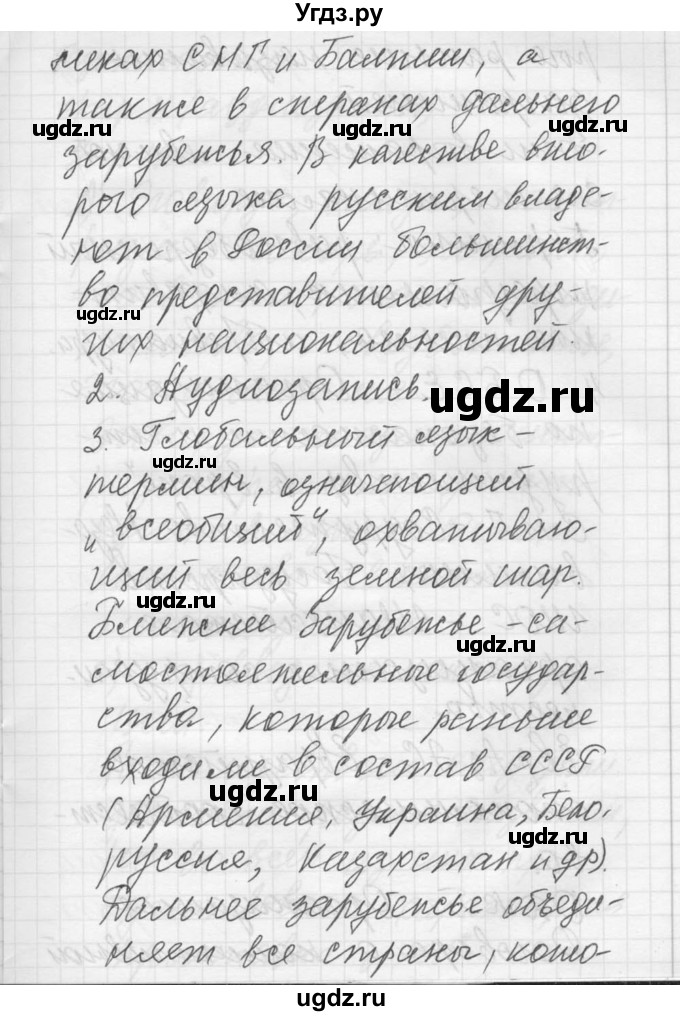 Угдз.ру
никах СНГ и Балтии, а
также в странах дальнего
ugdz.ru
ugdz.ru
зарубежья. В качестве вто-
ugdz.ru
рого языка русским владе-
ют в России большинст-
во представителей дру-
ugdz.ru
гих национальностей.
2. Аудиозапись.
ugdz.ru
3. Глобальный язык -
ugdz.ru
термин, означающий
„всеобщий“, охватываю-
щий весь земной шар.
ugdz.ru
Ближнее зарубежье - са-
ugdz.ru
мостоятельные государ-
ства, которые раньше
входили в состав СССР
ugdz.ru
(Армения, Украина, Бело-
ugdz.ru
руссия, Казахстан и др).
Дальнее зарубежье объеди-
няет все страны, кото-
ugdz.ru